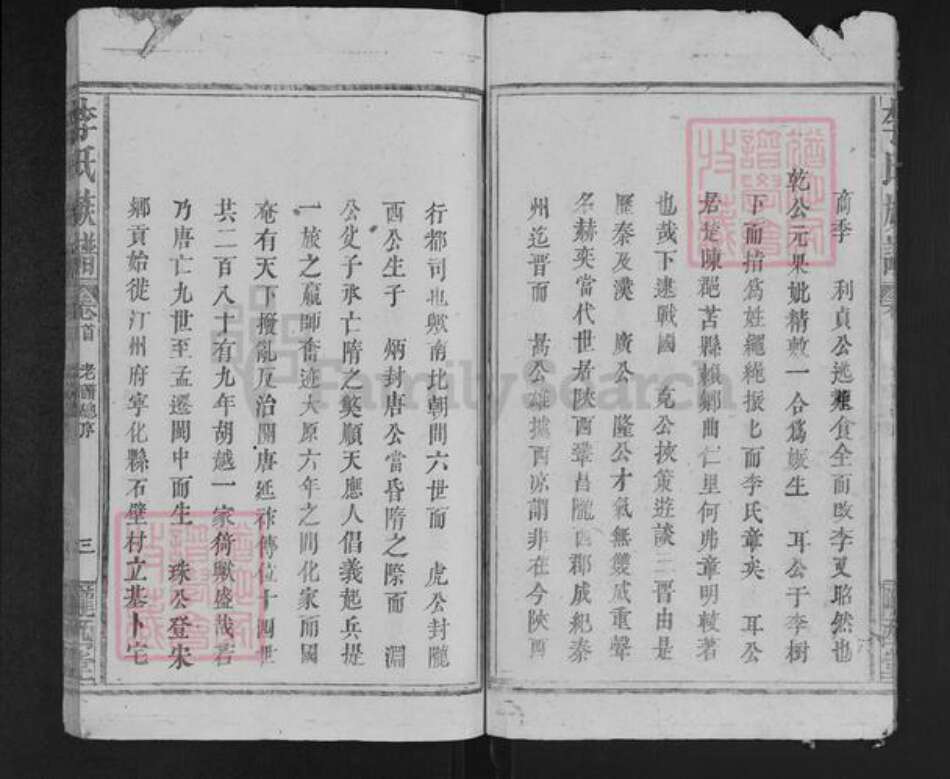 商季　利貞公逃難食全而改李又昭然也
乾公元果妣精敷一合為嫉生　耳公于李樹
下而指為姓繩繩振七而李氏章矣　耳公
居楚陳郡苦縣賴鄉曲仁里何弗章明較著
也哉下逮戰國　克公挾策遊談三晋由是
歷秦及漢　廣公　隆公才氣無雙威重聲
名赫奕當代世居陝西鞏昌隴西郡成紀秦
州迄晋而　暠公雄據西凉謂非在今陝西
行都司也歟南北朝間六世而　虎公封隴
西公生子　炳封唐公當昏隋之際而　淵
公父子承亡隋之獘順天應人倡義起兵提
一旅之羸師奮迹太原六年之間化家而國
奄有天下撥亂反治開唐延祚傳位十四世
共二百八十有九年胡越一家猗歟盛哉若
乃唐亡九世至孟遷閩中而生　珠公登朱
鄉貢始徙汀州府寧化縣石壁村立基卜宅
李氏族譜
卷首
老譜總序
三
FamilySearch